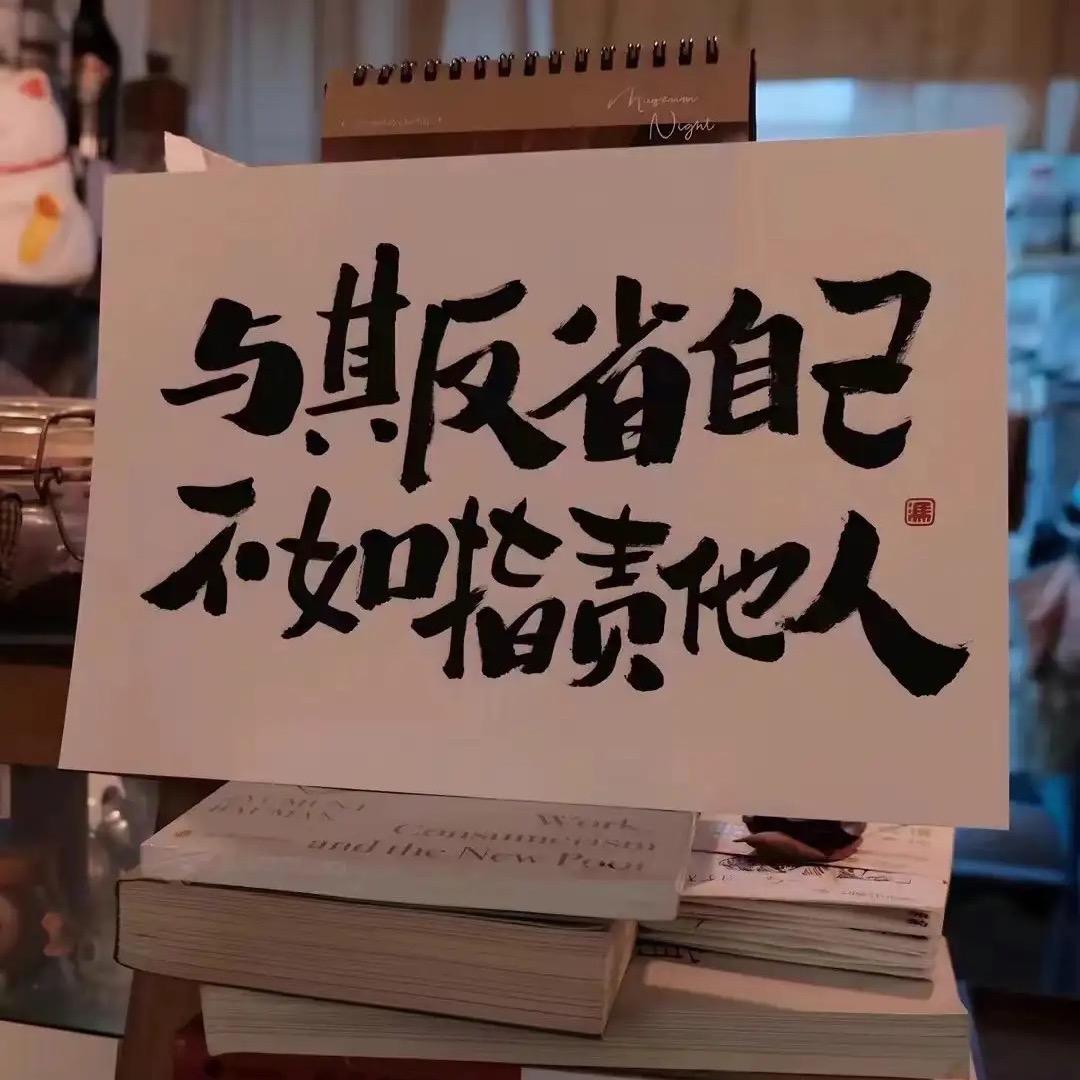 Museum
Night
与其反省自己
不如指责他人
馮
BAUMAN
Work,
Consumerism
and the New Poor